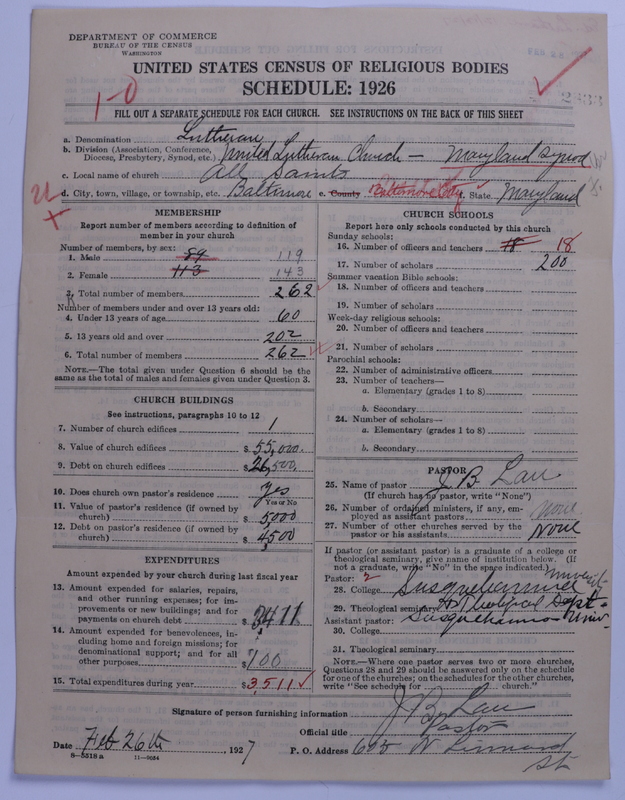 DEPARTMENT OF COMMERCE
BUREAU OF THE CENSUS
WASHINGTON
FEB 28
UNITED STATES CENSUS OF RELIGIOUS BODIES
SCHEDULE: 1926
1-0
FILL OUT A SEPARATE SCHEDULE FOR EACH CHURCH. SEE INSTRUCTIONS ON THE BACK OF THIS SHEET
a. Denomination Lutheran
b. Division (Association, Conference, Diocese, Presbytery, Synod, etc.) United Lutheran Church — Maryland Synod
c. Local name of church All Saints
d. City, town, village, or township, etc. Baltimore e. County Baltimore City f. State Maryland
MEMBERSHIP
Report number of members according to definition of
member in your church
Number of members, by sex:
1. Male 84 119
2. Female 113 143
3. Total number of members 262
Number of members under and over 13 years old:
4. Under 13 years of age 60
5. 13 years old and over 202
6. Total number of members 262
NOTE.—The total given under Question 6 should be
same as the total of males and females given under Question 3.
CHURCH BUILDINGS
See instructions, paragraphs 10 to 12
7. Number of church edifices 1
8. Value of church edifices $ 55,000.
9. Debt on church edifices $ 26,500.
10. Does church own pastor's residence Yes
Yes or No
11. Value of pastor's residence (if owned by
church) $ 5000
12. Debt on pastor's residence (if owned by
church) $ 4500
EXPENDITURES
Amount expended by your church during last fiscal year
13. Amount expended for salaries, repairs,
and other running expenses; for im-
provements or new buildings; and for
payments on church debt $ 3411
14. Amount expended for benevolences, in-
cluding home and foreign missions; for
denominational support; and for all
other purposes $ 100
15. Total expenditures during year $ 3,511
CHURCH SCHOOLS
Report here only schools conducted by this church
Sunday schools:
16. Number of officers and teachers 18 18
17. Number of scholars 200
Summer vacation Bible schools:
18. Number of officers and teachers
19. Number of scholars
Week-day religious schools:
20. Number of officers and teachers
21. Number of scholars
Parochial schools:
22. Number of administrative officers
23. Number of teachers—
a. Elementary (grades 1 to 8)
b. Secondary
24. Number of scholars—
a. Elementary (grades 1 to 8)
b. Secondary
PASTOR
25. Name of pastor J B Lau
(If church has no pastor, write "None")
26. Number of ordained ministers, if any, em-
ployed as assistant pastors None
27. Number of other churches served by the
pastor or his assistants None
If pastor (or assistant pastor) is a graduate of a college or
theological seminary, give name of institution below. (If
not a graduate, write "No" in the space indicated.)
Pastor: 2
28. College Susquehanna Universit
29. Theological seminary Theological Dept -
Assistant pastor: Susquehanna Univ
30. College
31. Theological seminary
NOTE.—Where one pastor serves two or more churches,
Questions 28 and 29 should be answered only on the schedule
for one of the churches; on the schedules for the other churches,
write "See schedule for church."
Signature of person furnishing information J B Lau
Official title Pastor
Date Feb 26th 1927 P. O. Address N Linwood
St.
8-5518 a 11-9034